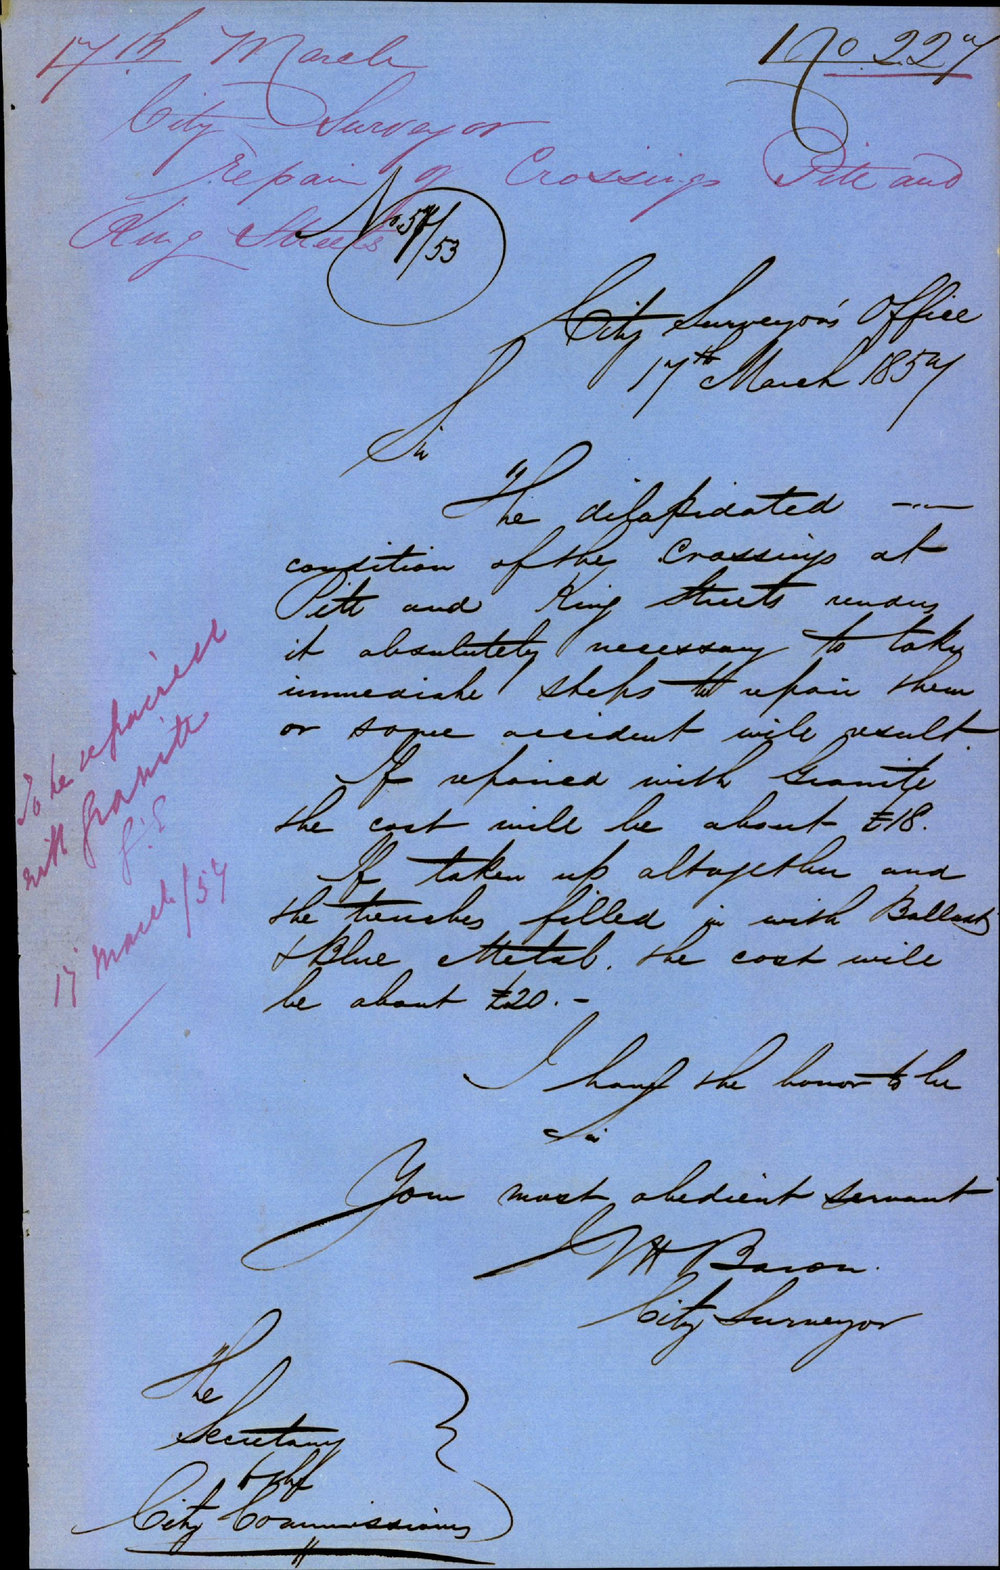 17th March
No 227
City Surveyor
repair of Crossings Pitt and
King Streets
No 54/53
City Surveyor's Office
17th March 1854
Sir
The dilapidated
condition of the Crossings at
Pitt and King Streets renders
it absolutely necessary to take
immediate steps to repair them
or some accident will result.
If repaired with Granite
the cost will be about £18.
If taken up altogether and
the trenches filled in with Ballast
& Blue Metal. the cost will
be about £20.-
To be repaired
with granite
17 March/54
I have the honor to be
Sir
Your most obedient servant
Baron
City Surveyor
The
Secretary
to the
City Commissioners